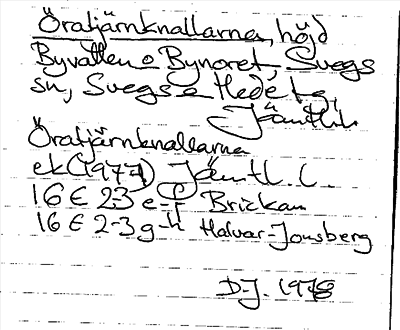 Öratjärnknallarna, höjd
Byvallen o Bynoret, Svegs
sn, Svegs o Hede tg,
Jämtl. l.
Öratjärnknallarna
ek (1977) Jämtl. l.
16 E 2-3 e-f Brickan
16 E 2-3 g-h Halvar-Jonsberg
D-J. 1978